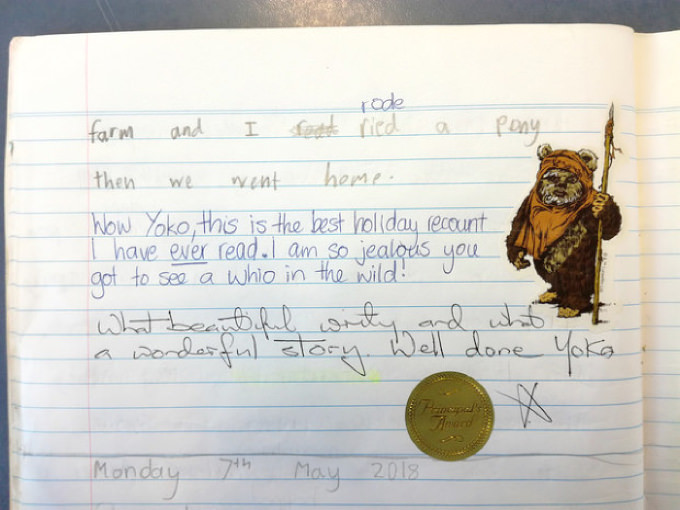 rode
farm and I ried a pony
then we went home.
Wow Yoko, this is the best holiday recount
I have ever read. I am so jealous you
got to see a whio in the wild!
What beautiful writing and what
a wonderful story. Well done Yoko
Principal's
Award
Monday 7th May 2018